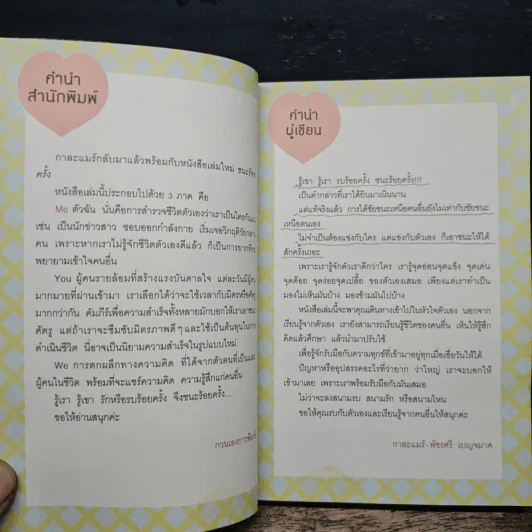 คำนำ
สำนักพิมพ์
กาละแมร์กลับมาแล้วพร้อมกับหนังสือเล่มใหม่ ชนะร้อย
ครั้ง
หนังสือเล่มนี้ประกอบไปด้วย 3 ภาค คือ
Me ตัวฉัน นั่นคือการสำรวจชีวิตตัวเองว่าเราเป็นใครกันแน่
เช่น เป็นนักข่าวสาว ชอบออกกำลังกาย เริ่มเจอวิกฤติวัย
คน เพราะหากเราไม่รู้จักชีวิตตัวเองดีแล้ว ก็เป็นการยากที่จะ
พยายามเข้าใจคนอื่น
You ผู้คนรายล้อมที่สร้างแรงบันดาลใจ แต่ละวันมีผู้คน
มากมายที่ผ่านเข้ามา เราเลือกได้ว่าจะใช้เวลากับมิตรหรือศัตรู
มากกว่ากัน คัมภีร์เพื่อความสำเร็จทั้งหลายมักบอกให้เราเอาชนะ
ศัตรู แต่ถ้าเราจะชื่มซับมิตรภาพดีๆ และใช้เป็นต้นทุนในการ
ดำเนินชีวิต นี่อาจเป็นนิยามความสำเร็จในรูปแบบใหม่
We การตกผลึกทางความคิด ที่ได้จากตัวตนที่เป็นและ
ผู้คนในชีวิต พร้อมที่จะแชร์ความคิด ความรู้สึกแก่คนอื่น
รู้เรา รู้เขา รักหรือรบร้อยครั้ง จึงชนะร้อยครั้ง...
ขอให้อ่านสนุกค่ะ
กวนเองการพิมพ์
คำนำ
ผู้เขียน
รู้เขา รู้เรา รบร้อยครั้ง ชนะร้อยครั้ง!!?
เป็นคำกล่าวที่เราได้ยินมาเนิ่นนาน
แต่แท้จริงแล้ว การได้ชัยชนะเหนือคนอื่นยังไม่เท่ากับชัยชนะ
เหนือตนเอง
ไม่จำเป็นต้องแข่งกับใคร แค่แข่งกับตัวเอง ก็เอาชนะให้ได้
สักครั้งเถอะ
เพราะเรารู้จักตัวเราดีกว่าใคร เรารู้จุดอ่อนจุดแข็ง จุดเด่น
จุดด้อย จุดอ่อยจุดเปลี้ย ของตัวเองเสมอ เพียงแต่เราทำเป็น
มองไม่เห็นมันบ้าง มองข้ามมันไปบ้าง
หนังสือเล่มนี้จะพาคุณเดินทางเข้าไปในหัวใจตัวเอง นอกจาก
เรียนรู้จากตัวเอง เรายังสามารถเรียนรู้ชีวิตของคนอื่น เห็นให้รู้สึก
คิดแล้วศึกษา แล้วนำมาปรับใช้
เพื่อรู้จักรับมือกับความทุกข์ที่เข้ามาอยู่ทุกเมื่อเชื่อวันให้ได้
ปัญหาหรืออุปสรรคอะไรที่ว่ายาก ว่าใหญ่ เราจะบอกให้
เข้ามาเลย เพราะเราพร้อมรับมือกับมันเสมอ
ไม่ว่าจะลงสนามรบ สนามรัก หรือสนามไหน
ขอให้คุณรบกับตัวเองและเรียนรู้จากคนอื่นให้สนุกค่ะ
กาละแมร์-พัชรศรี เบญจมาศ